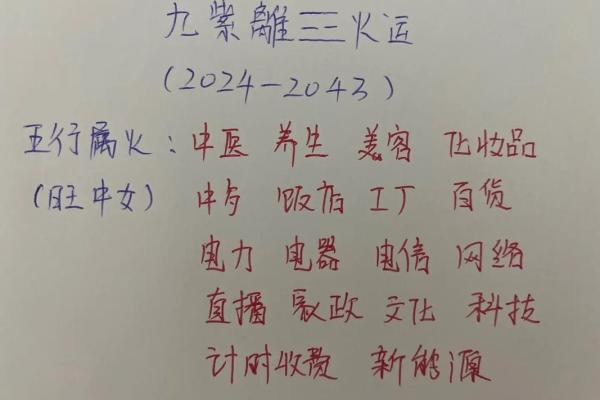 九紫離☲火运
(2024-2043)
五行属火:中医 养生 美容 化妆品
(旺中女) 饭店 工厂 百货
电力 电器 电信 网络
直播 家政 文化 科技
计时收费 新能源